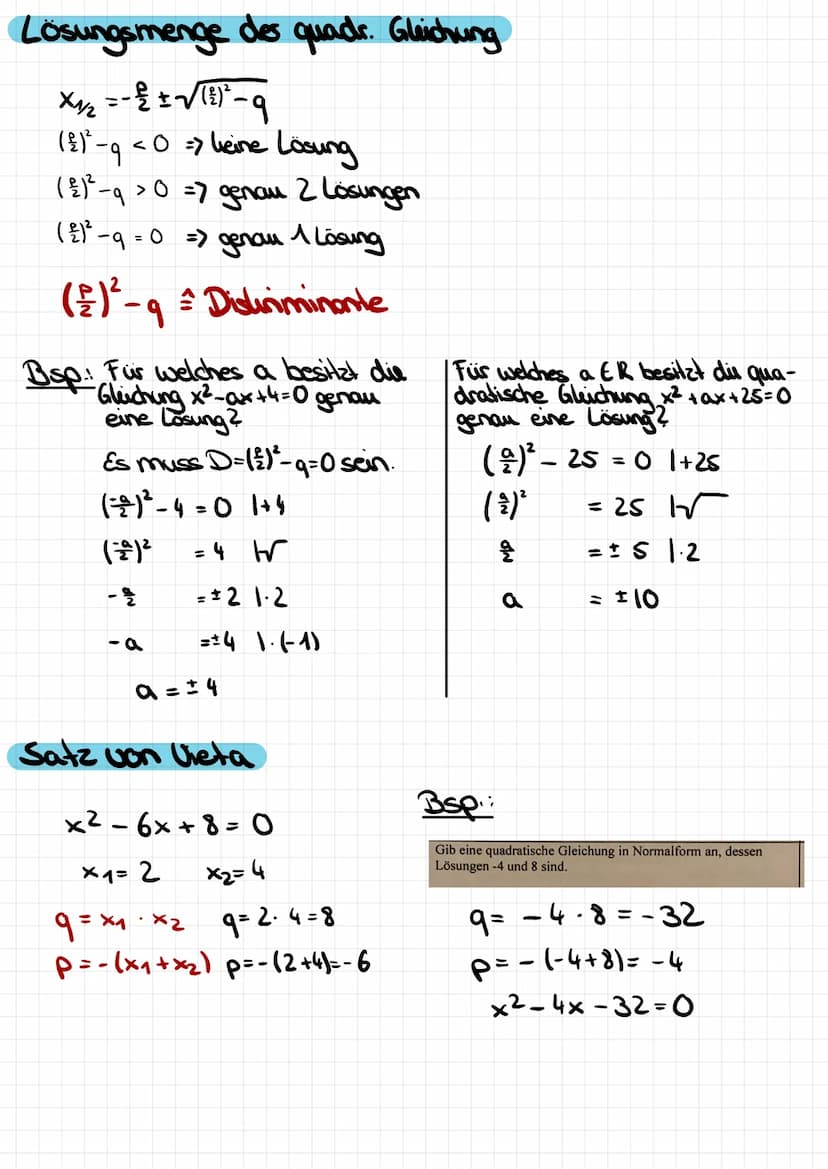 Lösungsmenge der quadr. Gleichung
x₁/₂ = -p/2 ± √((p/2)² - q)
(p/2)² - q < 0 => keine Lösung
(p/2)² - q > 0 => genau 2 Lösungen
(p/2)² - q = 0 => genau 1 Lösung
(p/2)² - q ≙ Diskriminante
Bsp.: Für welches a besitzt die
Gleichung x² - ax + 4 = 0 genau
eine Lösung?
Es muss D = (p/2)² - q = 0 sein.
(-a/2)² - 4 = 0 | + 4
(-a/2)² = 4 | √
-a/2 = ± 2 | · 2
-a = ± 4 | · (-1)
a = ± 4
Für welches a ∈ R besitzt die qua-
dratische Gleichung x² + ax + 25 = 0
genau eine Lösung?
(a/2)² - 25 = 0 | + 25
(a/2)² = 25 | √
a/2 = ± 5 | · 2
a = ± 10
Satz von Vieta
x² - 6x + 8 = 0
x₁ = 2 x₂ = 4
q = x₁ · x₂ q = 2 · 4 = 8
p = -(x₁ + x₂) p = -(2 + 4) = -6
Bsp.:
Gib eine quadratische Gleichung in Normalform an, dessen
Lösungen -4 und 8 sind.
q = -4 · 8 = -32
p = -(-4 + 8) = -4
x² - 4x - 32 = 0